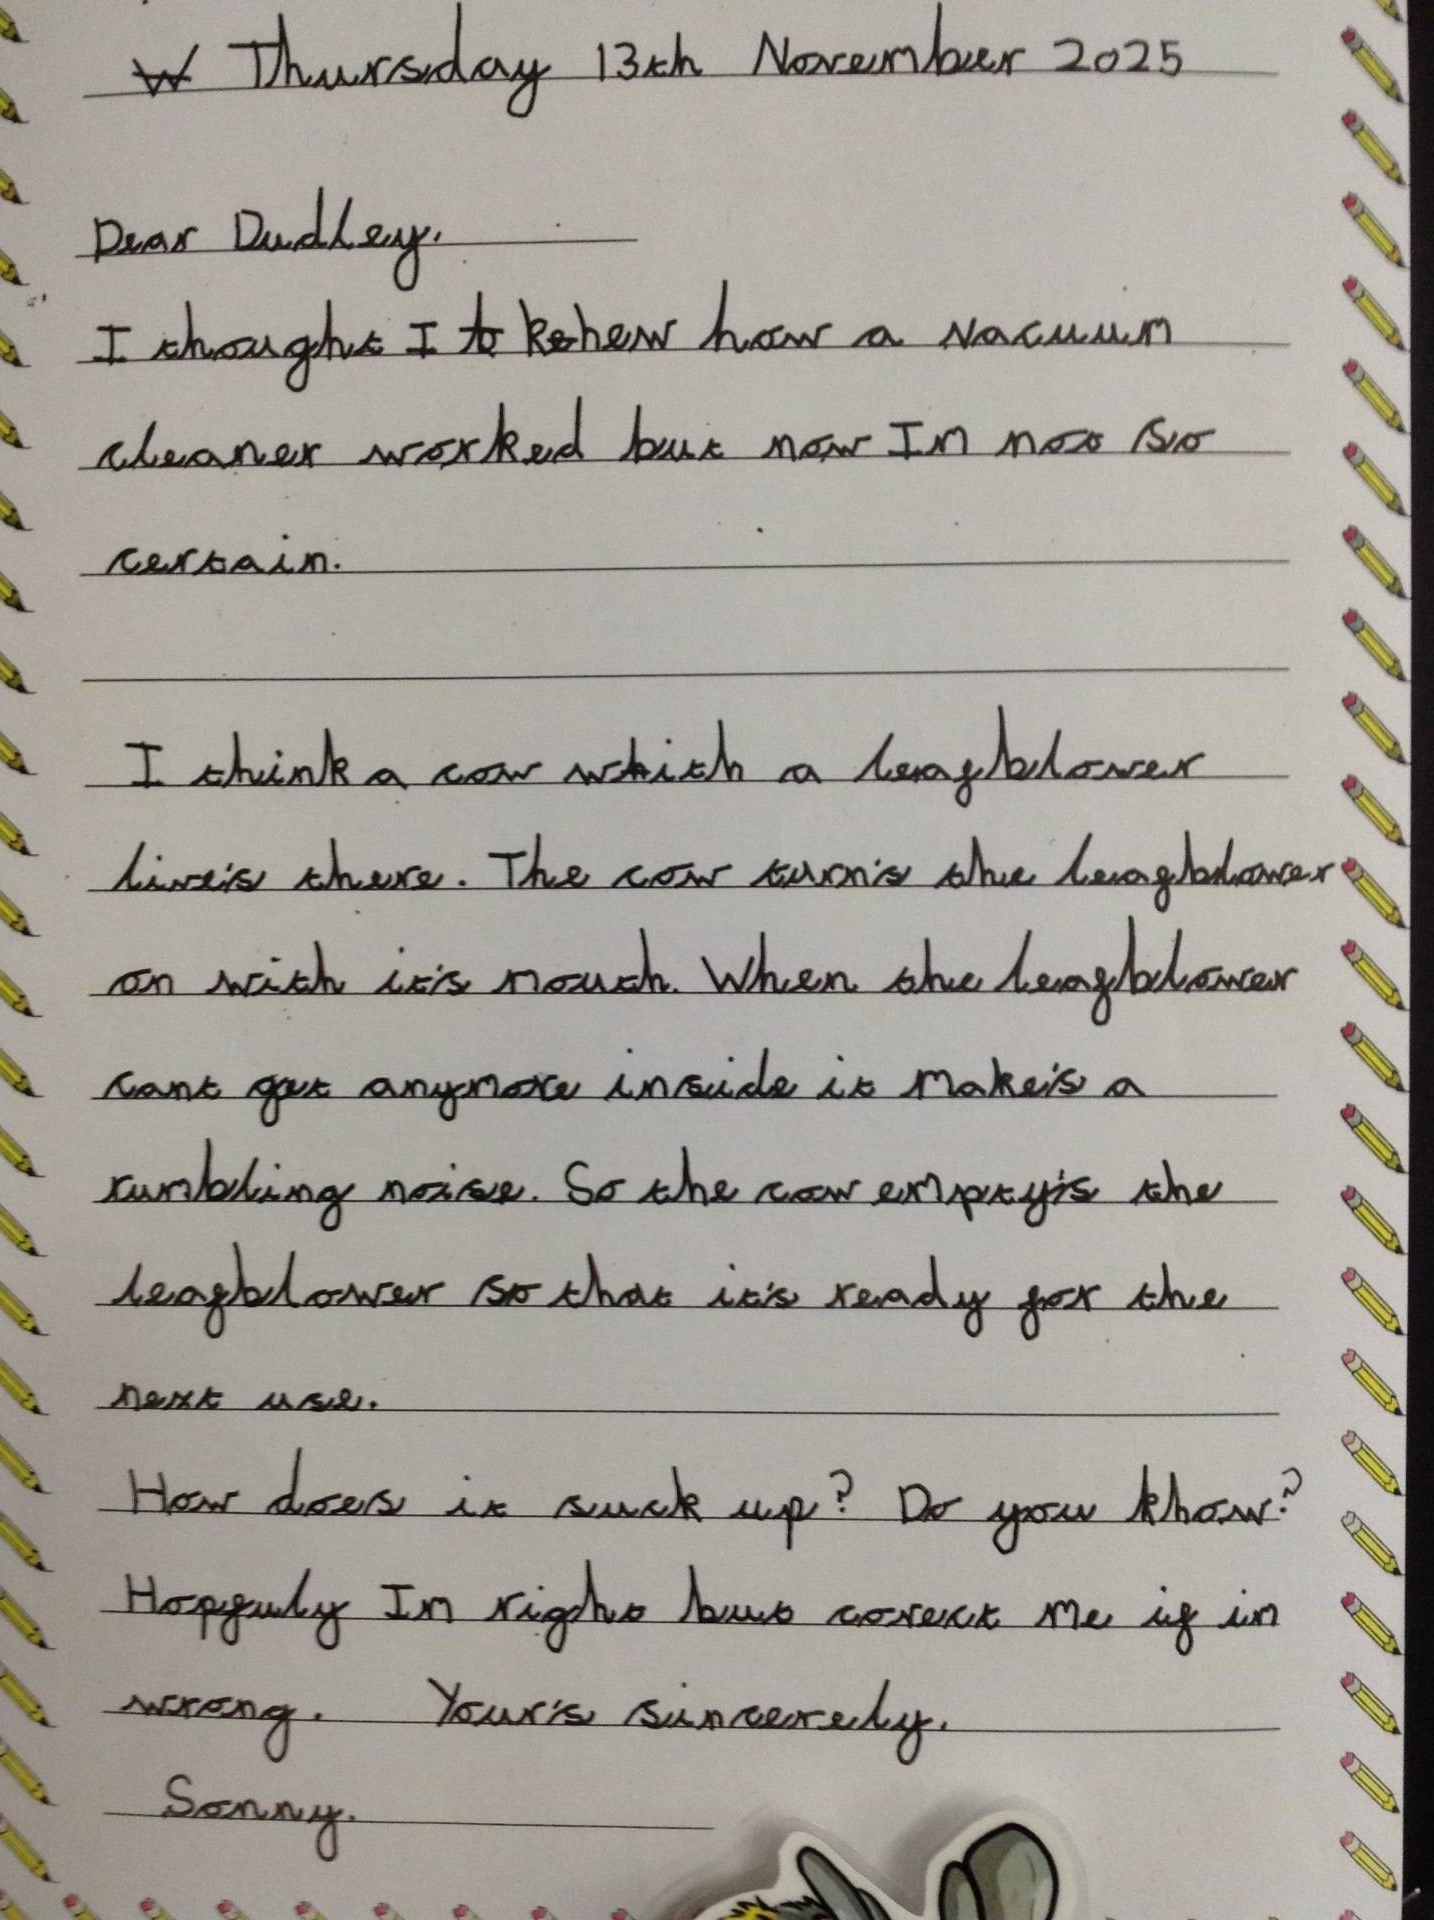 W Thursday 13th November 2025
Dear Dudley.
I thought I to knew how a vacuum
cleaner worked but now Im not so
certain.
I think a cow which a leafblower
live's there. The cow turn's the leafblower
on with it's mouth. When the leafblower
cant get anymore inside it make's a
rumbling noise. So the cow empty's the
leafblower so that it's ready for the
next use.
How does it suck up? Do you know?
Hopfuly Im right but corect me if im
wrong. Your's sincerely.
Sonny.